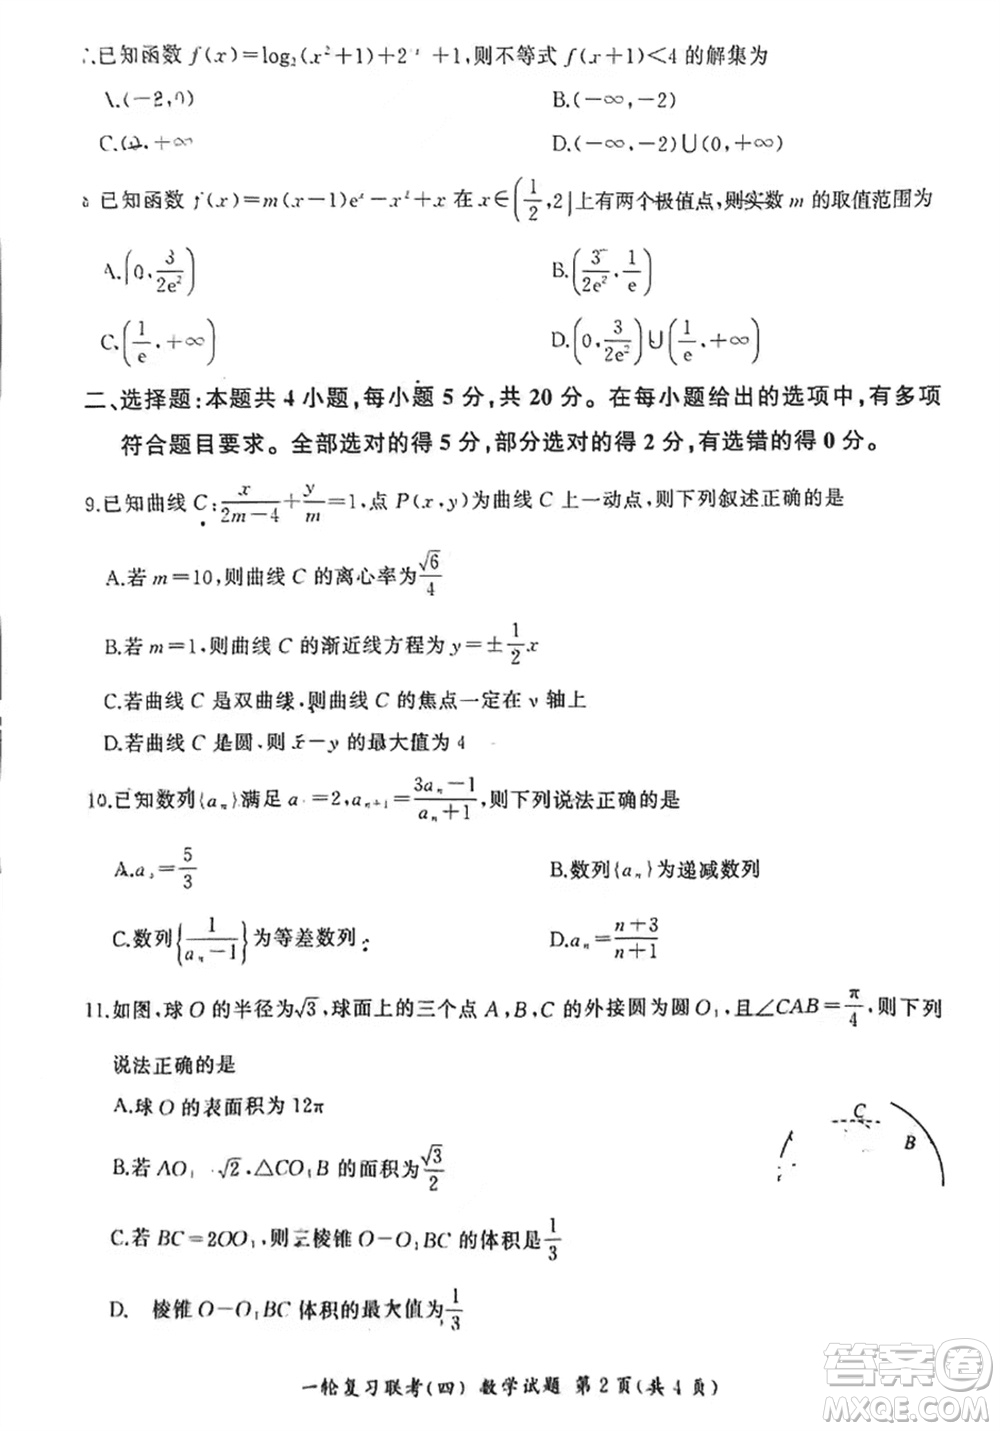 已知函数 f(x)=log₂(x²+1)+2 +1,则不等式 f(x+1)<4 的解集为
A.(-2,0) B.(-∞,-2)
C.( ,+∞ D.(-∞,-2)∪(0,+∞)
已知函数 f(x)=m(x-1)eˣ-x²+x 在 x∈(1/2,2 上有两个极值点,则实数 m 的取值范围为
A.(0,3/2e²) B.(3/2e²,1/e)
C.(1/e,+∞) D.(0,3/2e²)∪(1/e,+∞)
二、选择题:本题共 4 小题,每小题 5 分,共 20 分。在每小题给出的选项中,有多项
符合题目要求。全部选对的得 5 分,部分选对的得 2 分,有选错的得 0 分。
9.已知曲线 C:x/(2m-4)+y/m=1,点 P(x,y)为曲线 C 上一动点,则下列叙述正确的是
A.若 m=10,则曲线 C 的离心率为√6/4
B.若 m=1,则曲线 C 的渐近线方程为 y=±1/2x
C.若曲线 C 是双曲线,则曲线 C 的焦点一定在 y 轴上
D.若曲线 C 是圆,则 x-y 的最大值为 4
10.已知数列{aₙ}满足 a =2,aₙ₊₁=(3aₙ-1)/(aₙ+1),则下列说法正确的是
A.a =5/3 B.数列{aₙ}为递减数列
C.数列{1/(aₙ-1)}为等差数列 D.aₙ=(n+3)/(n+1)
11.如图,球 O 的半径为√3,球面上的三个点 A,B,C 的外接圆为圆 O₁,且∠CAB=π/4,则下列
说法正确的是
A.球 O 的表面积为 12π
B.若 AO₁ √2,△CO₁B 的面积为√3/2
C.若 BC=2OO₁,则三棱锥 O-O₁BC 的体积是1/3
D. 棱锥 O-O₁BC 体积的最大值为1/3
C
B
一轮复习联考(四) 数学试题 第 2 页(共 4 页)
答案卷
MXQE.COM